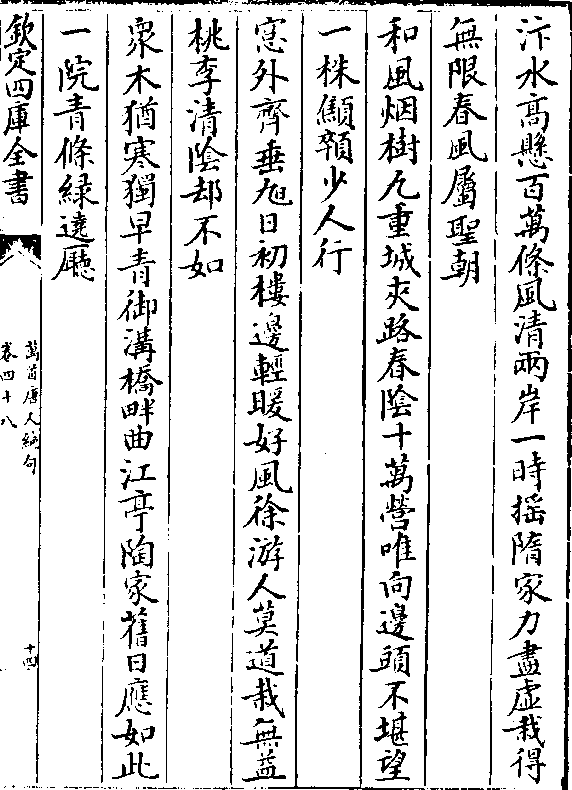 汴水髙懸百萬條風清兩岸一時揺隋家力盡虚栽得
無限春風屬聖朝
和風烟樹九重城夾路春隂十萬營唯向邊頭不堪望
一株顦顇少人行
窓外齊垂旭日初樓邊輕暖好風徐游人莫道栽無益
桃李清隂却不如
衆木猶寒獨早青御溝橋畔曲江亭陶家舊日應如此
一院青條緑遶廳
欽定四庫全書
萬首唐人絶句
卷四十八
十四